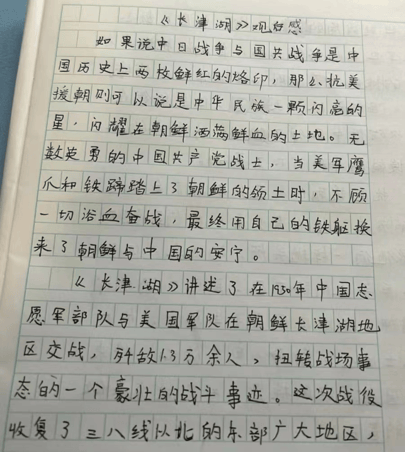 《长津湖》观后感
如果说中日战争与国共战争是中
国历史上两枚鲜红的烙印，那么抗美
援朝则可以说是中华民族一颗闪亮的
星，闪耀在朝鲜洒满鲜血的土地。无
数英勇的中国共产党战士，当美军鹰
爪和铁蹄踏上了朝鲜的领土时，不顾
一切浴血奋战，最终用自己的铁躯换
来了朝鲜与中国的安宁。
《长津湖》讲述了在1950年中国志
愿军部队与美国军队在朝鲜长津湖地
区交战，歼敌1.3万余人，扭转战场事
态的一个豪壮的战斗事迹。这次战役
收复了三八线以北的东部广大地区，